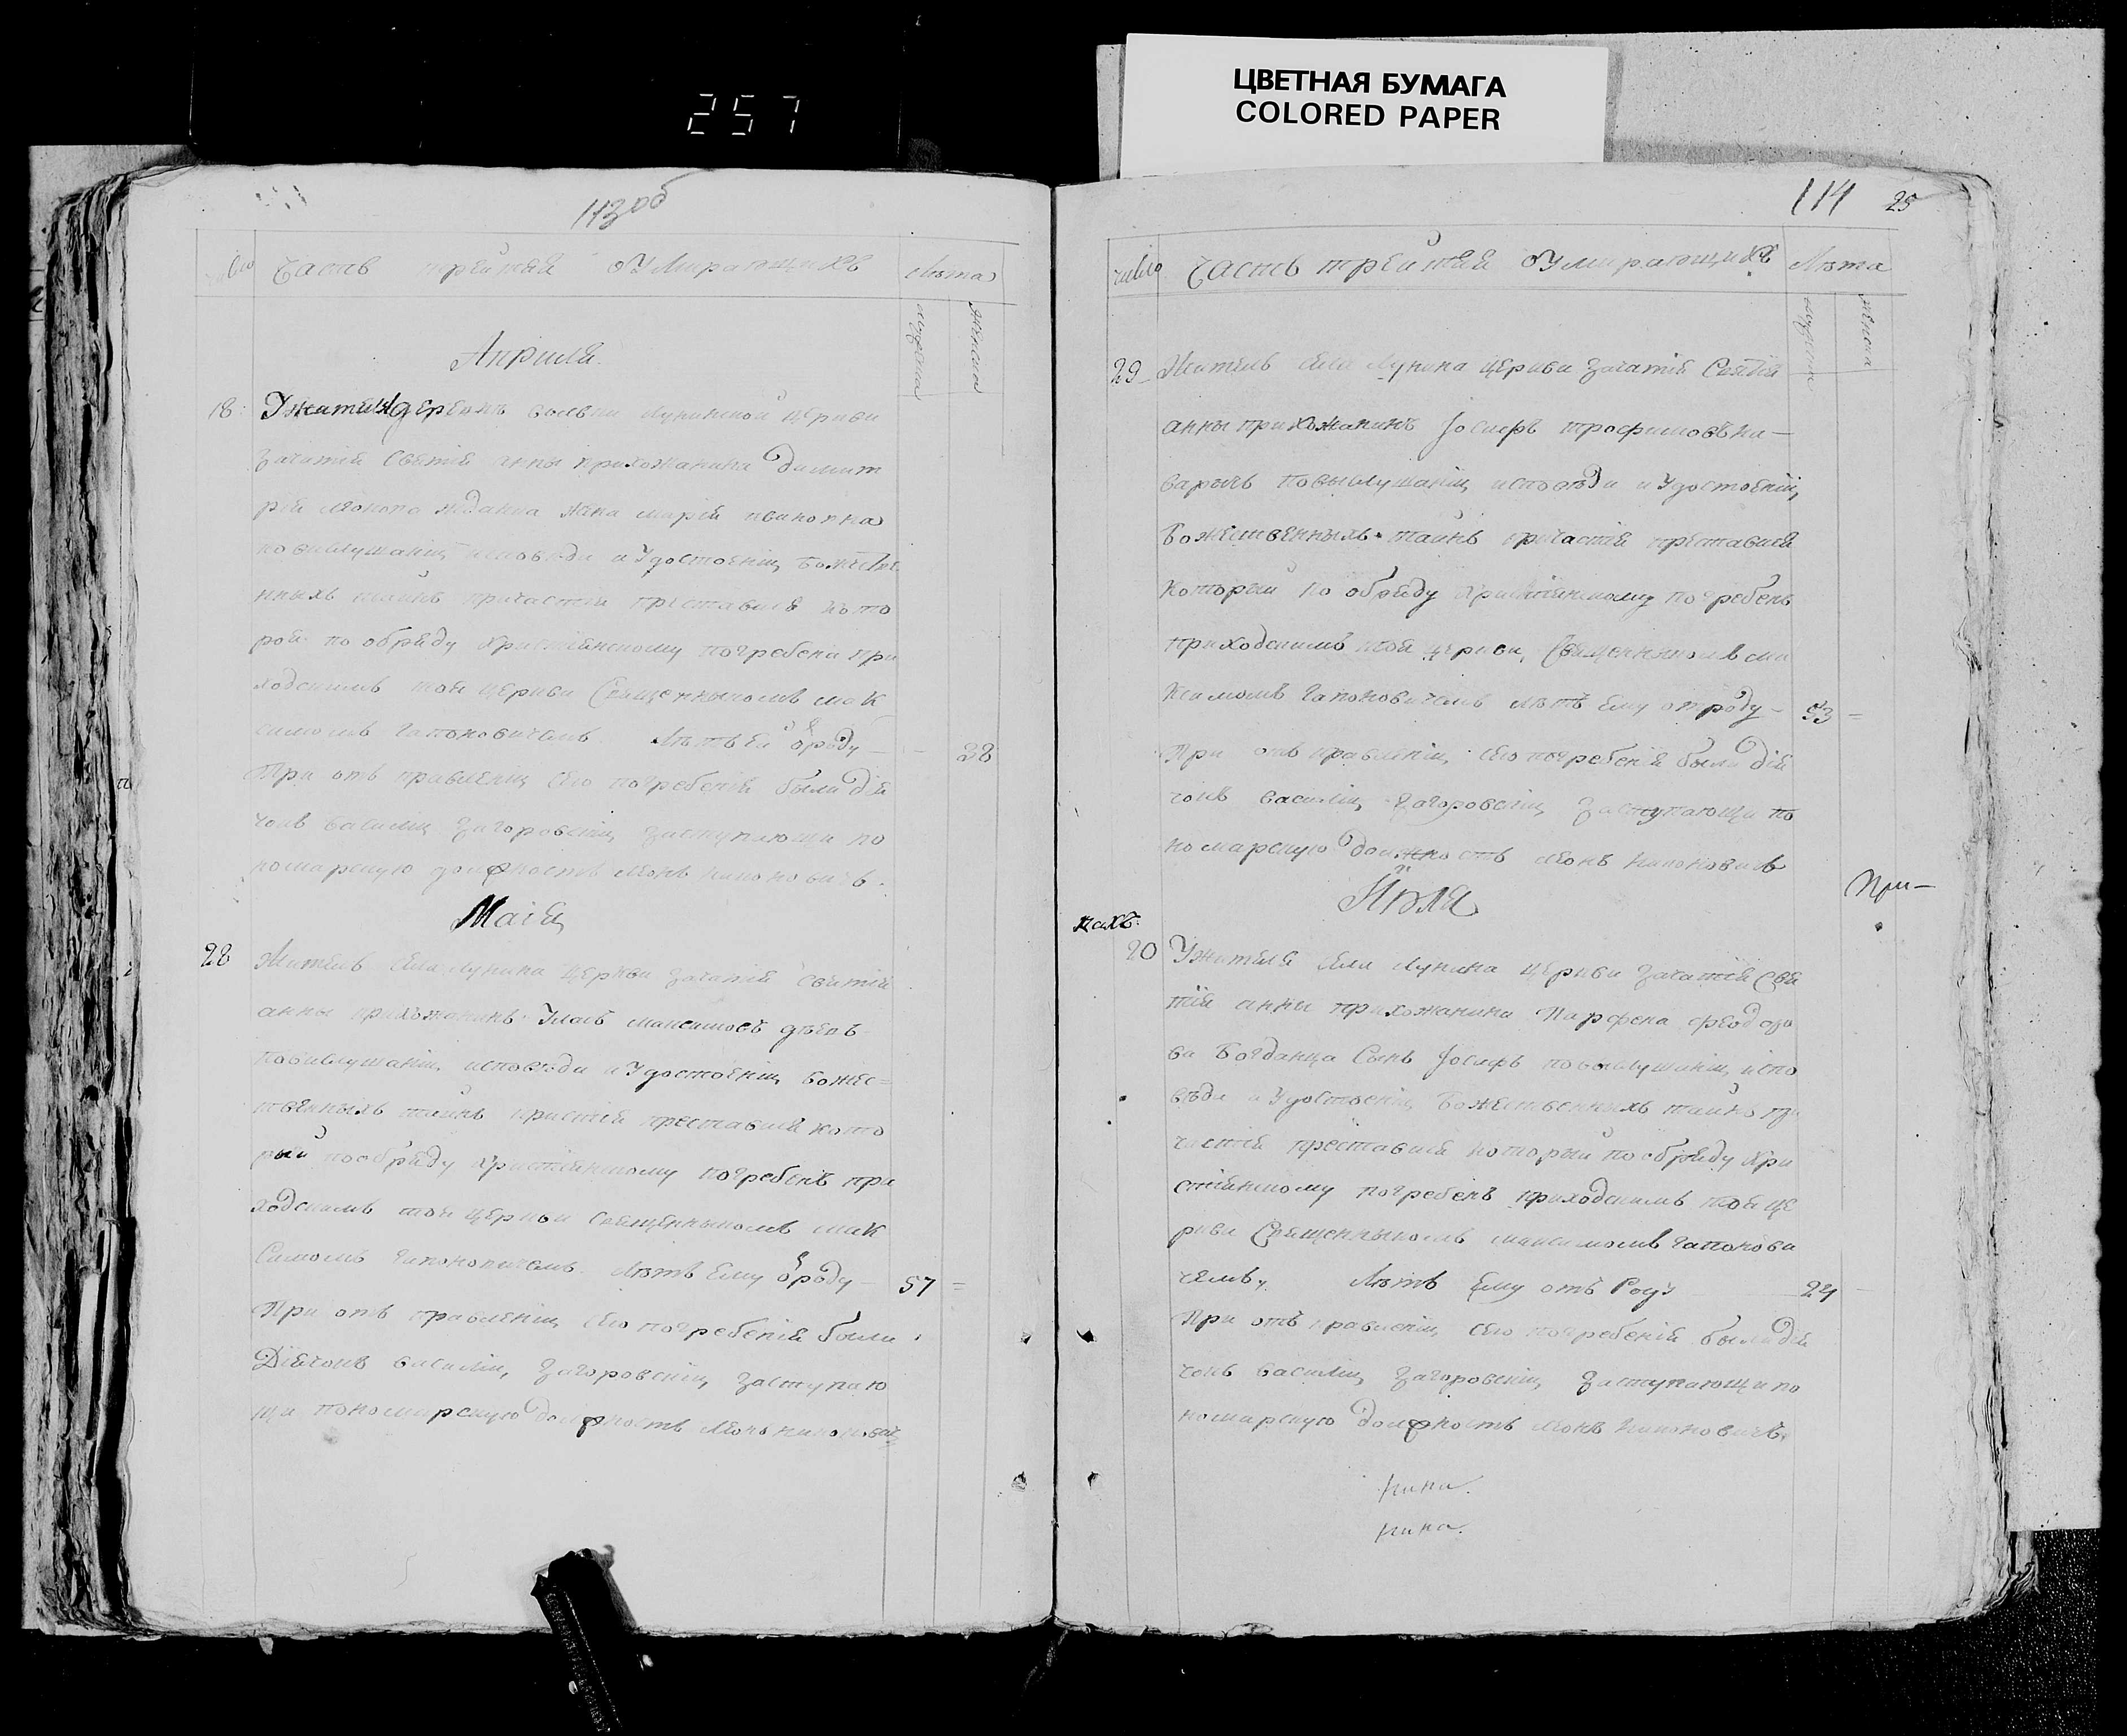 257
ЦВЕТНАЯ БУМАГА
COLORED PAPER
113 об
число Часть трейтяя оУмирающихъ Лѣта
мужеска женска
Априля
18: Ужителя деревнѣ волвки Лунинской церкви
Зачатія святія анны прихожанина Димит
рія жена марія
по выслушаніи исповѣди и Удостоеніи Божестве
нныхъ таинъ причастія преставися кото
рой по обряду христіянскому погребена при
ходскимъ той церкви Священныкомъ мак
симомъ Гапоновичемъ Лѣтъ Ей о роду — 38
При отъ правленіи сего погребенія были дія
чокъ василіи Загоровскіи, заступающи по
номарскую должность Леонъ
Маія
28 Житель села Лунина церкви зачатія святія
анны прихожанинъ Уласъ максимовъ
по выслушаніи исповѣди и Удостоеніи божес=
твенныхъ таинъ пристія преставися кото
рый по обряду христіянскому погребенъ при
ходскимъ той церкви священныкомъ мак
Симомъ Гапоновичемъ. Лѣтъ Ему о роду — 57 =
При отъ правленіи сего погребенія были
Діячокъ василіи, Загоровскіи, заступаю
щи пономарскую должность Леонъ
114 25
число Часть трейтяя оУмирающихъ Лѣта
мужеска женска
29 Житель села Лунина церкви Зачатія Святія
анны прихожанинъ Іосифъ трофимовъ ки—
варычъ по выслушаніи исповѣди и Удостоеніи,
Божественныхъ таинъ причастія преставися
который по обряду христіянскому погребенъ
приходскимъ той церкви, Священныкомъ ма
ксимомъ Гапоновичемъ лѣтъ Ему отроду — 53 =
При отъ правленіи сего погребенія были дія
чокъ василіи Загоровскіи, заступающи по
номарскую должность Леонъ
При—
Июля
20 Ужителя села Лунина церкви зачатія Свя
тія анны прихожанина Парфена Феодоро
ва Богданца Сынъ Іосифъ по выслушаніи испо
вѣди и Удостоеніи Божественныхъ таинъ при
частія преставися который по обряду Хри
стіянскому погребенъ приходскимъ той це
ркви Священныкомъ максимомъ Гапонови
чемъ, Лѣтъ Ему отъ Роду 24
При отъ правленіи сего погребенія были дія
чокъ василіи Загоровскіи, заступающи по
номарскую должность Леонъ